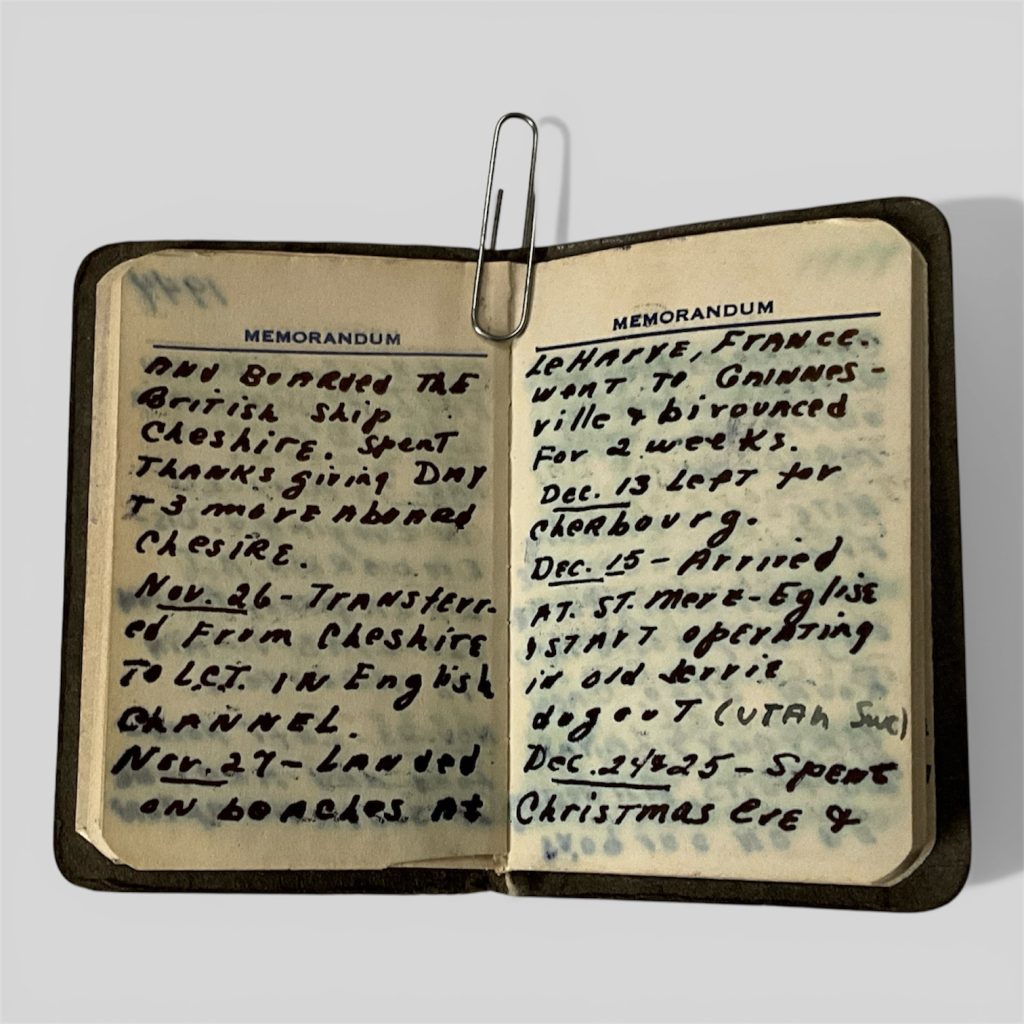 MEMORANDUM
AND BOARDED THE
British ship
Cheshire. Spent
THANKS giving DAY
& 3 more Aboard
Chesire.
Nov. 26 - Transferr-
ed From Cheshire
To L.C.T. IN English
CHANNEL.
Nov. 27 - Landed
on beaches At
MEMORANDUM
LeHarve, France.
went To Gainnes-
ville & bivouaced
For 2 weeks.
Dec. 13 Left for
Cherbourg.
Dec. 15 - Arrived
AT. ST. Mere-Eglise
START operating
in old
dugout (UTAH
Dec. 24 & 25 - Spent
Christmas Eve &